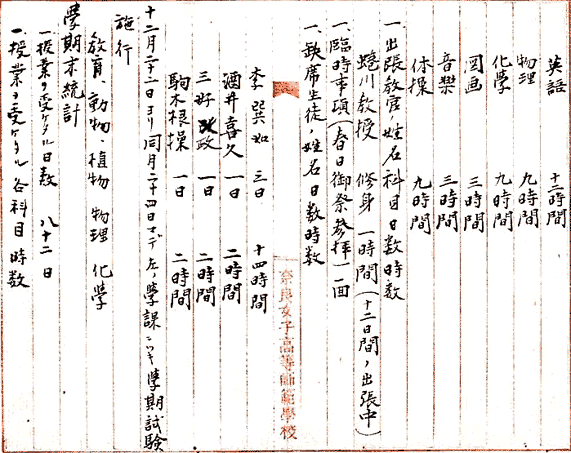 英語 十二時間
物理 九時間
化學 九時間
図画 三時間
音樂 三時間
体操 九時間
一、出張教官ノ姓名科目日数時数
蜷川教授 修身 一時間(十二日間ノ出張中)
一、臨時事項(春日御祭参拝)一回
一、缺席生徒ノ姓名日数時数
奈良女子高等師範學校
李巽如 三日 十四時間
酒井喜久 一日 二時間
三好政 一日 二時間
駒木根操 一日 二時間
十二月二十一日ヨリ同月二十四日マデ左ノ學課ニツキ學期試験
施行
教育、動物、植物 物理 化學
學期末統計
一授業ヲ受ケタル日数 八十二日
一授業ヲ受ケタル各科目時数